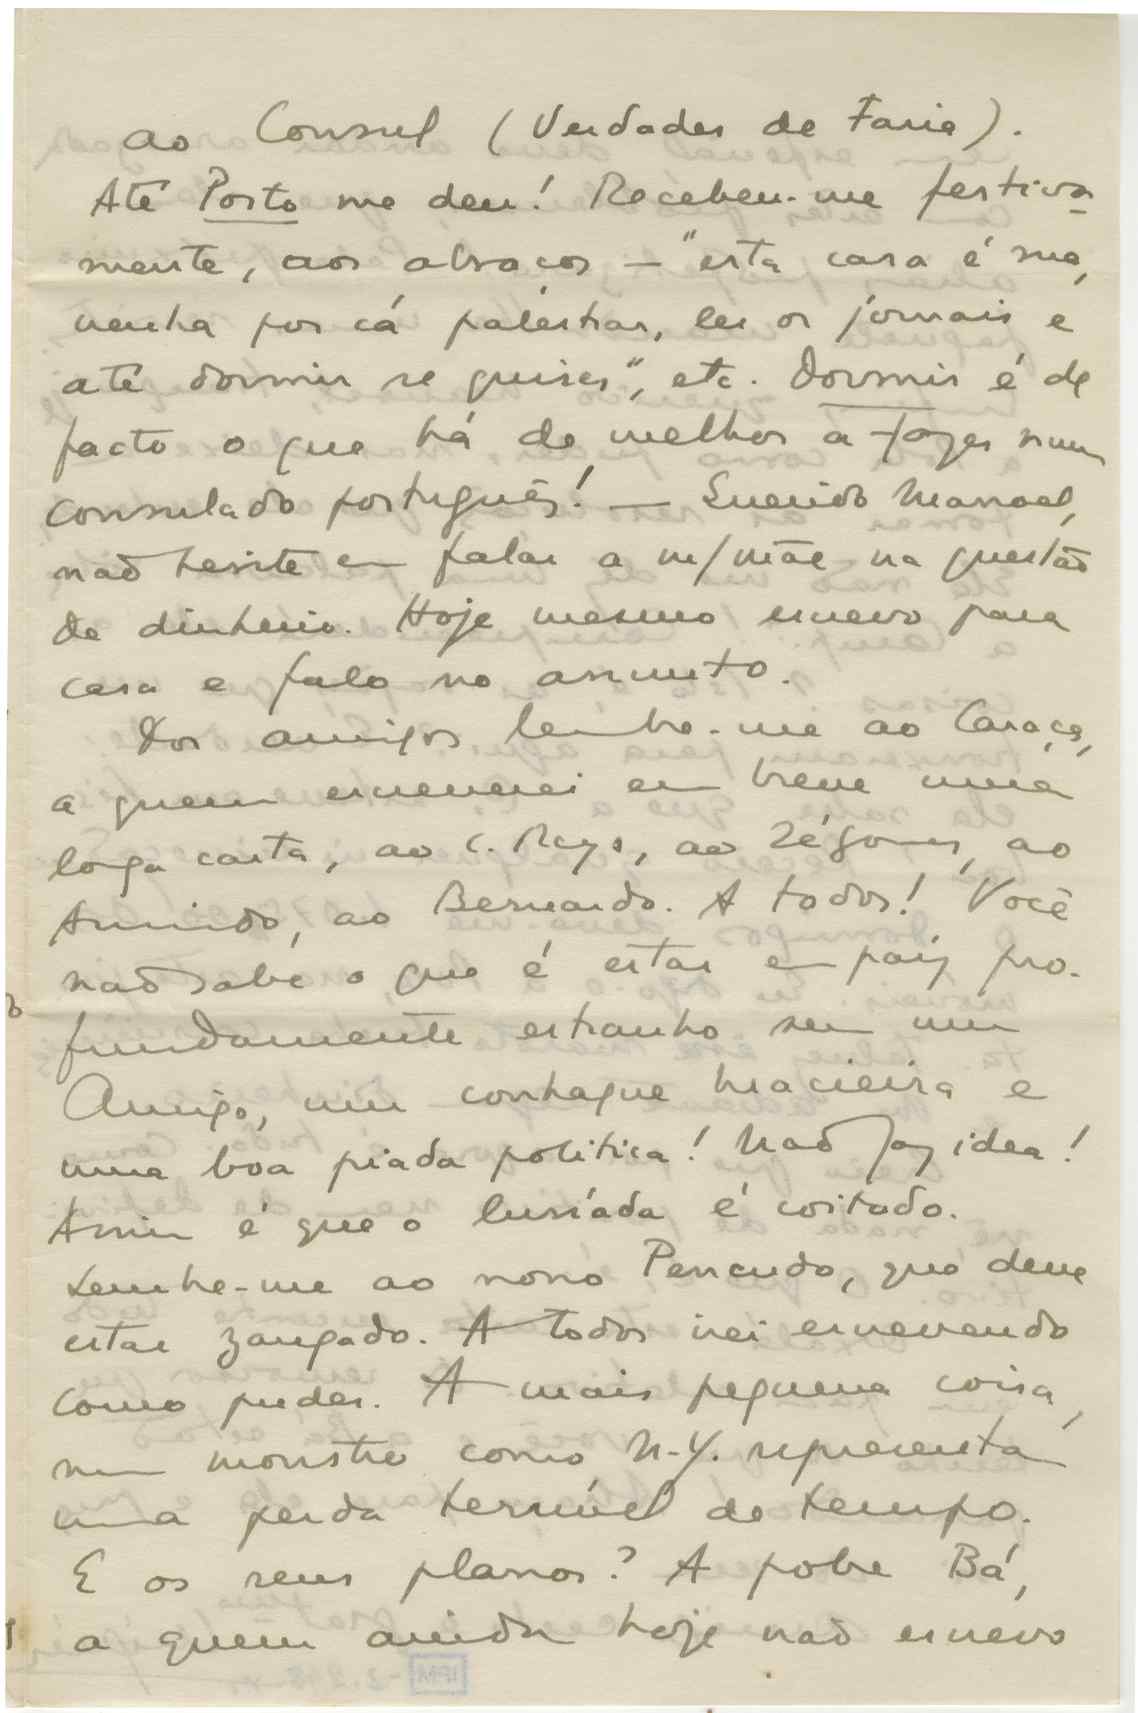 ao Consul (Verdades de Faria).
Até Porto me deu! Recebeu-me festiva-
mente, aos abraços — "esta casa é sua,
venha por cá palestrar, ler os jornais e
até dormir se quiser", etc. Dormir é de
facto o que há de melhor a fazer num
consulado português! — Querido Manoel,
não hesite em falar a m/mãe na questão
de dinheiro. Hoje mesmo escrevo para
casa e falo no assunto.
Dos amigos lembre-me ao Caraça,
a quem escreverei em breve uma
longa carta, ao C. Reys, ao Zé Gomes, ao
Armindo, ao Bernardo. A todos! Você
não sabe o que é estar em paiz pro-
fundamente estranho sem um
Amigo, um conhaque macieira e
uma boa piada politica! Não faz idea!
Assim é que o lusíada é coitado.
Lembre-me ao nosso Penudo, que deve
estar zangado. A todos irei escrevendo
como puder. A mais pequena coisa,
num monstro como N.Y. representa
uma perda terrível de tempo.
E os seus planos? A pobre Bá,
a quem ainda hoje não escrevo